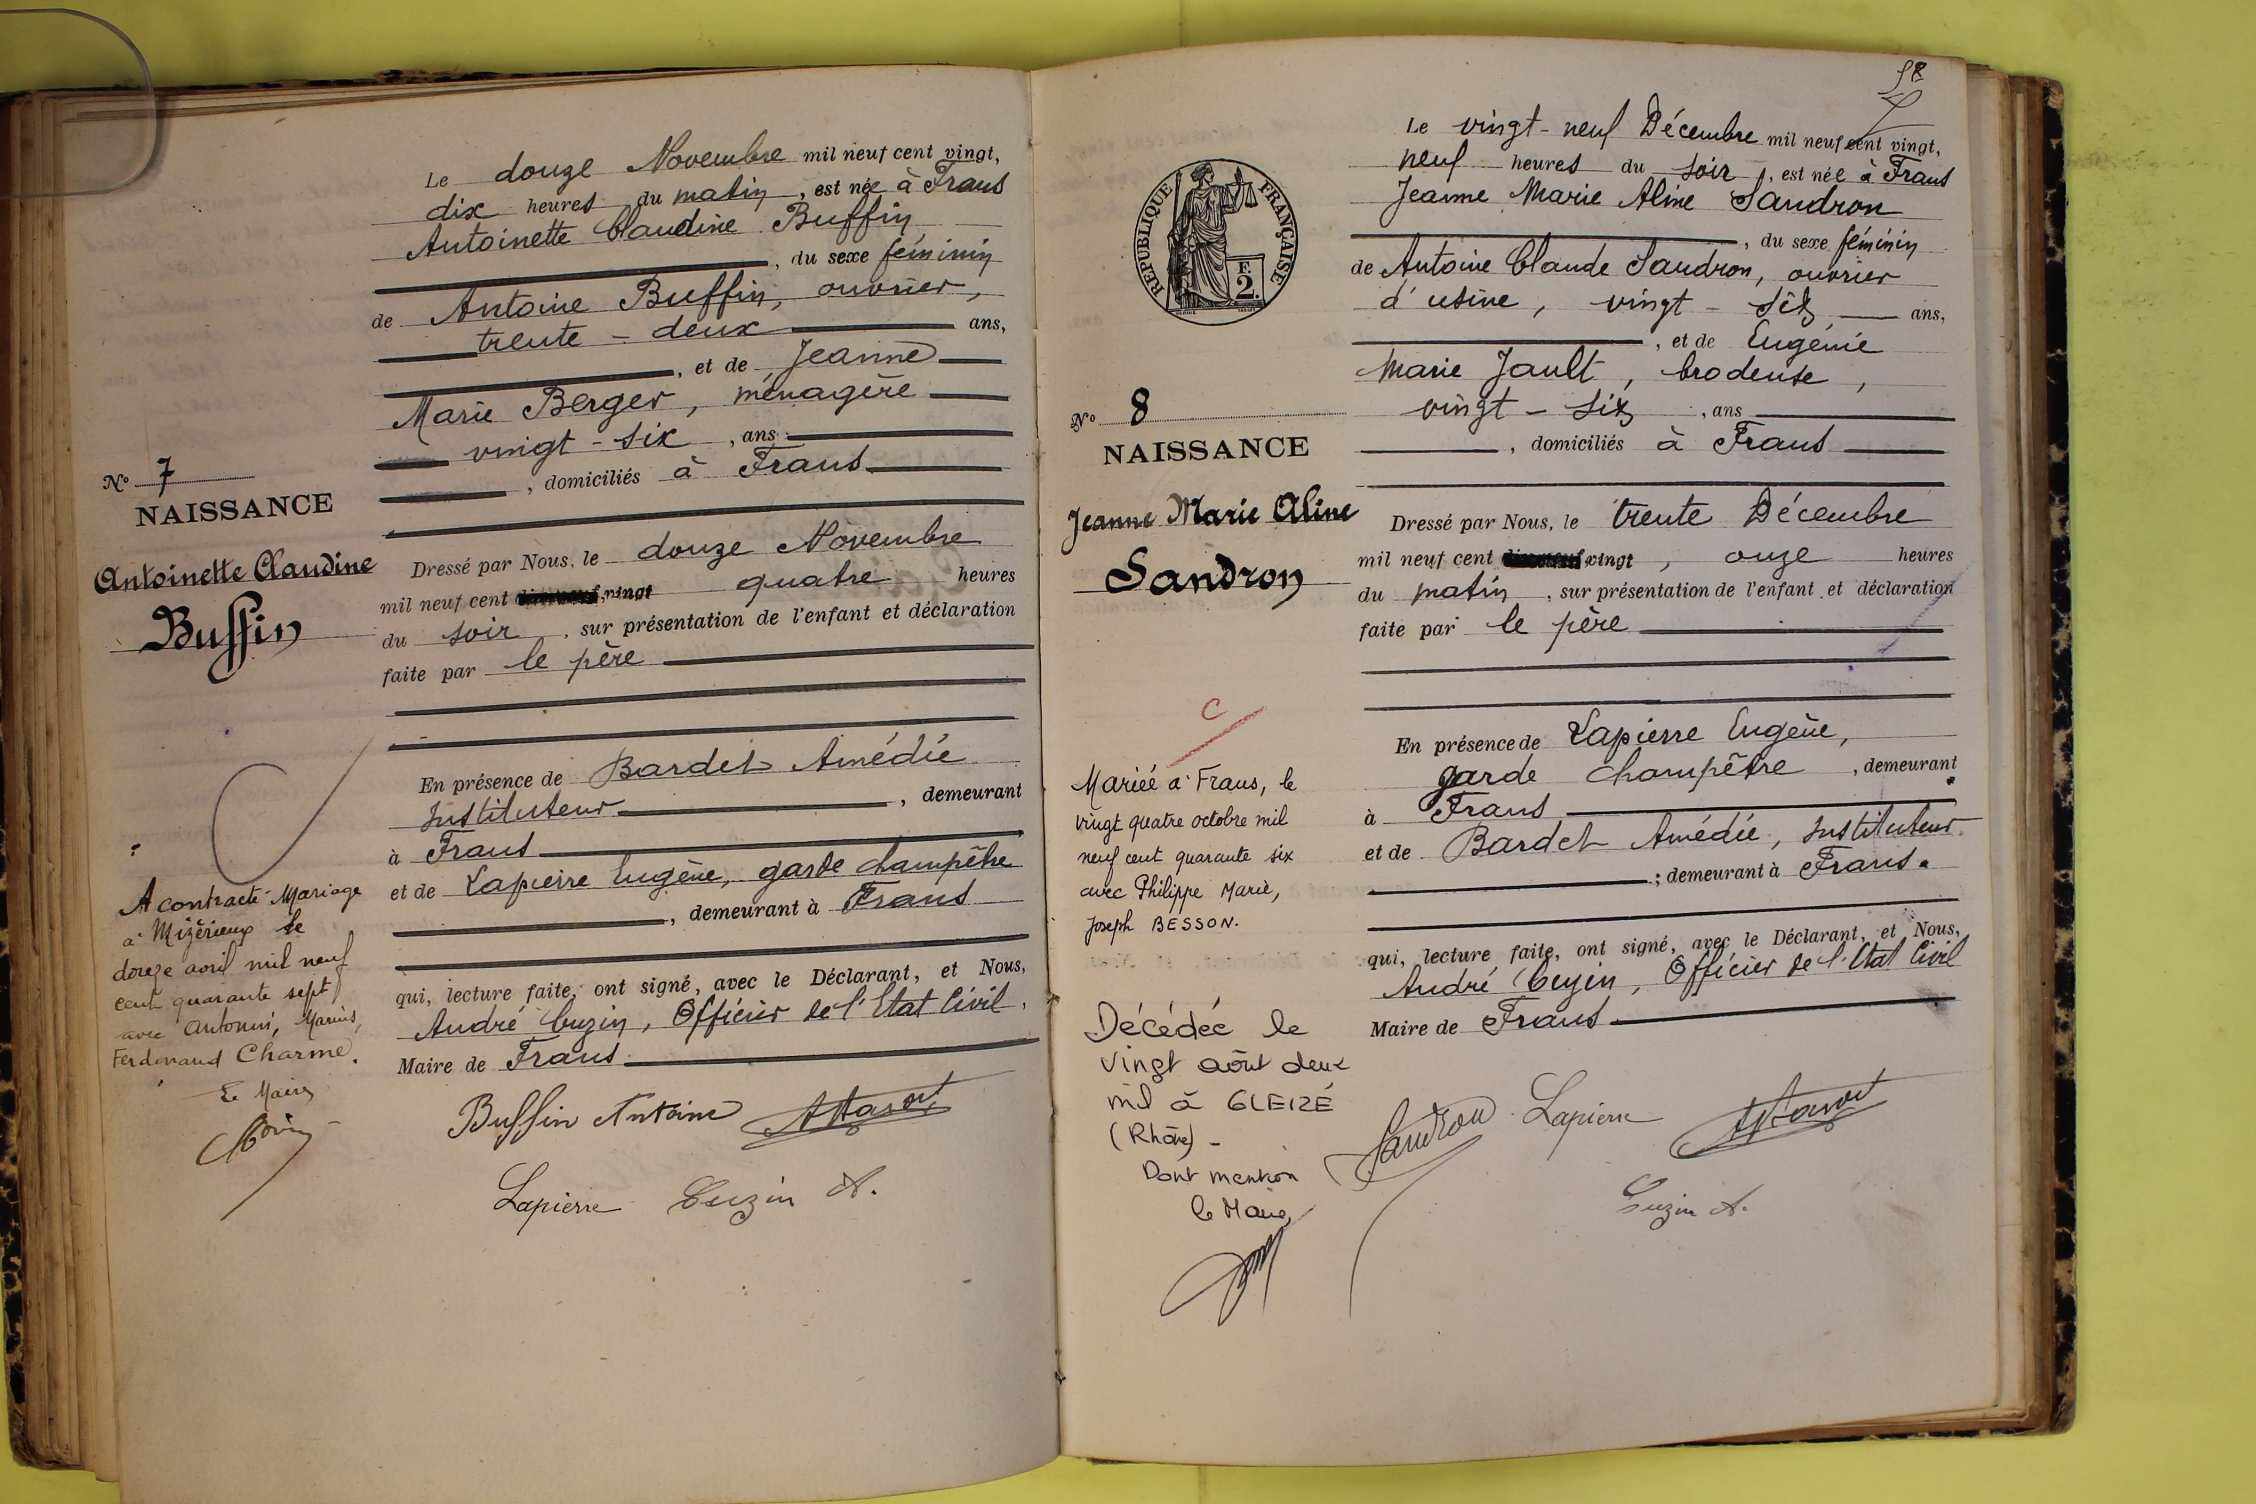 Le douze Novembre mil neuf cent vingt,
dix heures du matin, est née à Frans
Antoinette Claudine Buffin
, du sexe féminin
de Antoine Buffin, ouvrier,
trente-deux ans,
, et de Jeanne
Marie Berger, ménagère
vingt-six, ans
, domiciliés à Frans
N° 7
NAISSANCE
Antoinette Claudine
Buffin
Dressé par Nous, le douze Novembre
mil neuf cent vingt quatre heures
du soir, sur présentation de l'enfant et déclaration
faite par le père
En présence de Bardet Amédée
Instituteur, demeurant
à Frans
et de Lapierre Eugène, garde champêtre
, demeurant à Frans
qui, lecture faite, ont signé, avec le Déclarant, et Nous,
André Cuzin, Officier de l'Etat Civil,
Maire de Frans
A contracté Mariage
à Mizérieux le
douze avril mil neuf
cent quarante sept
avec Antonin, Marius,
Ferdinand Charme.
Le Maire
Buffin Antoine
Lapierre Cuzin A.
58
Le vingt-neuf Décembre mil neuf cent vingt,
neuf heures du soir, est née à Frans
Jeanne Marie Aline Sandron
, du sexe féminin
de Antoine Claude Sandron, ouvrier
d'usine, vingt-six ans,
, et de Eugénie
Marie Jault, brodeuse,
vingt-six, ans
, domiciliés à Frans
REPUBLIQUE FRANÇAISE
F.
2.
N° 8
NAISSANCE
Jeanne Marie Aline
Sandron
Dressé par Nous, le trente Décembre
mil neuf cent vingt, onze heures
du matin, sur présentation de l'enfant et déclaration
faite par le père
En présence de Lapierre Eugène,
garde champêtre, demeurant
à Frans
et de Bardet Amédée, Instituteur
; demeurant à Frans.
qui, lecture faite, ont signé, avec le Déclarant, et Nous,
André Cuzin, Officier de l'Etat Civil
Maire de Frans
C
Mariée à Frans, le
vingt quatre octobre mil
neuf cent quarante six
avec Philippe Marie,
Joseph BESSON.
Décédée le
vingt août deux
mil à GLEIZÉ
(Rhône) -
Dont mention
le Maire,
Sandron Lapierre
Cuzin A.